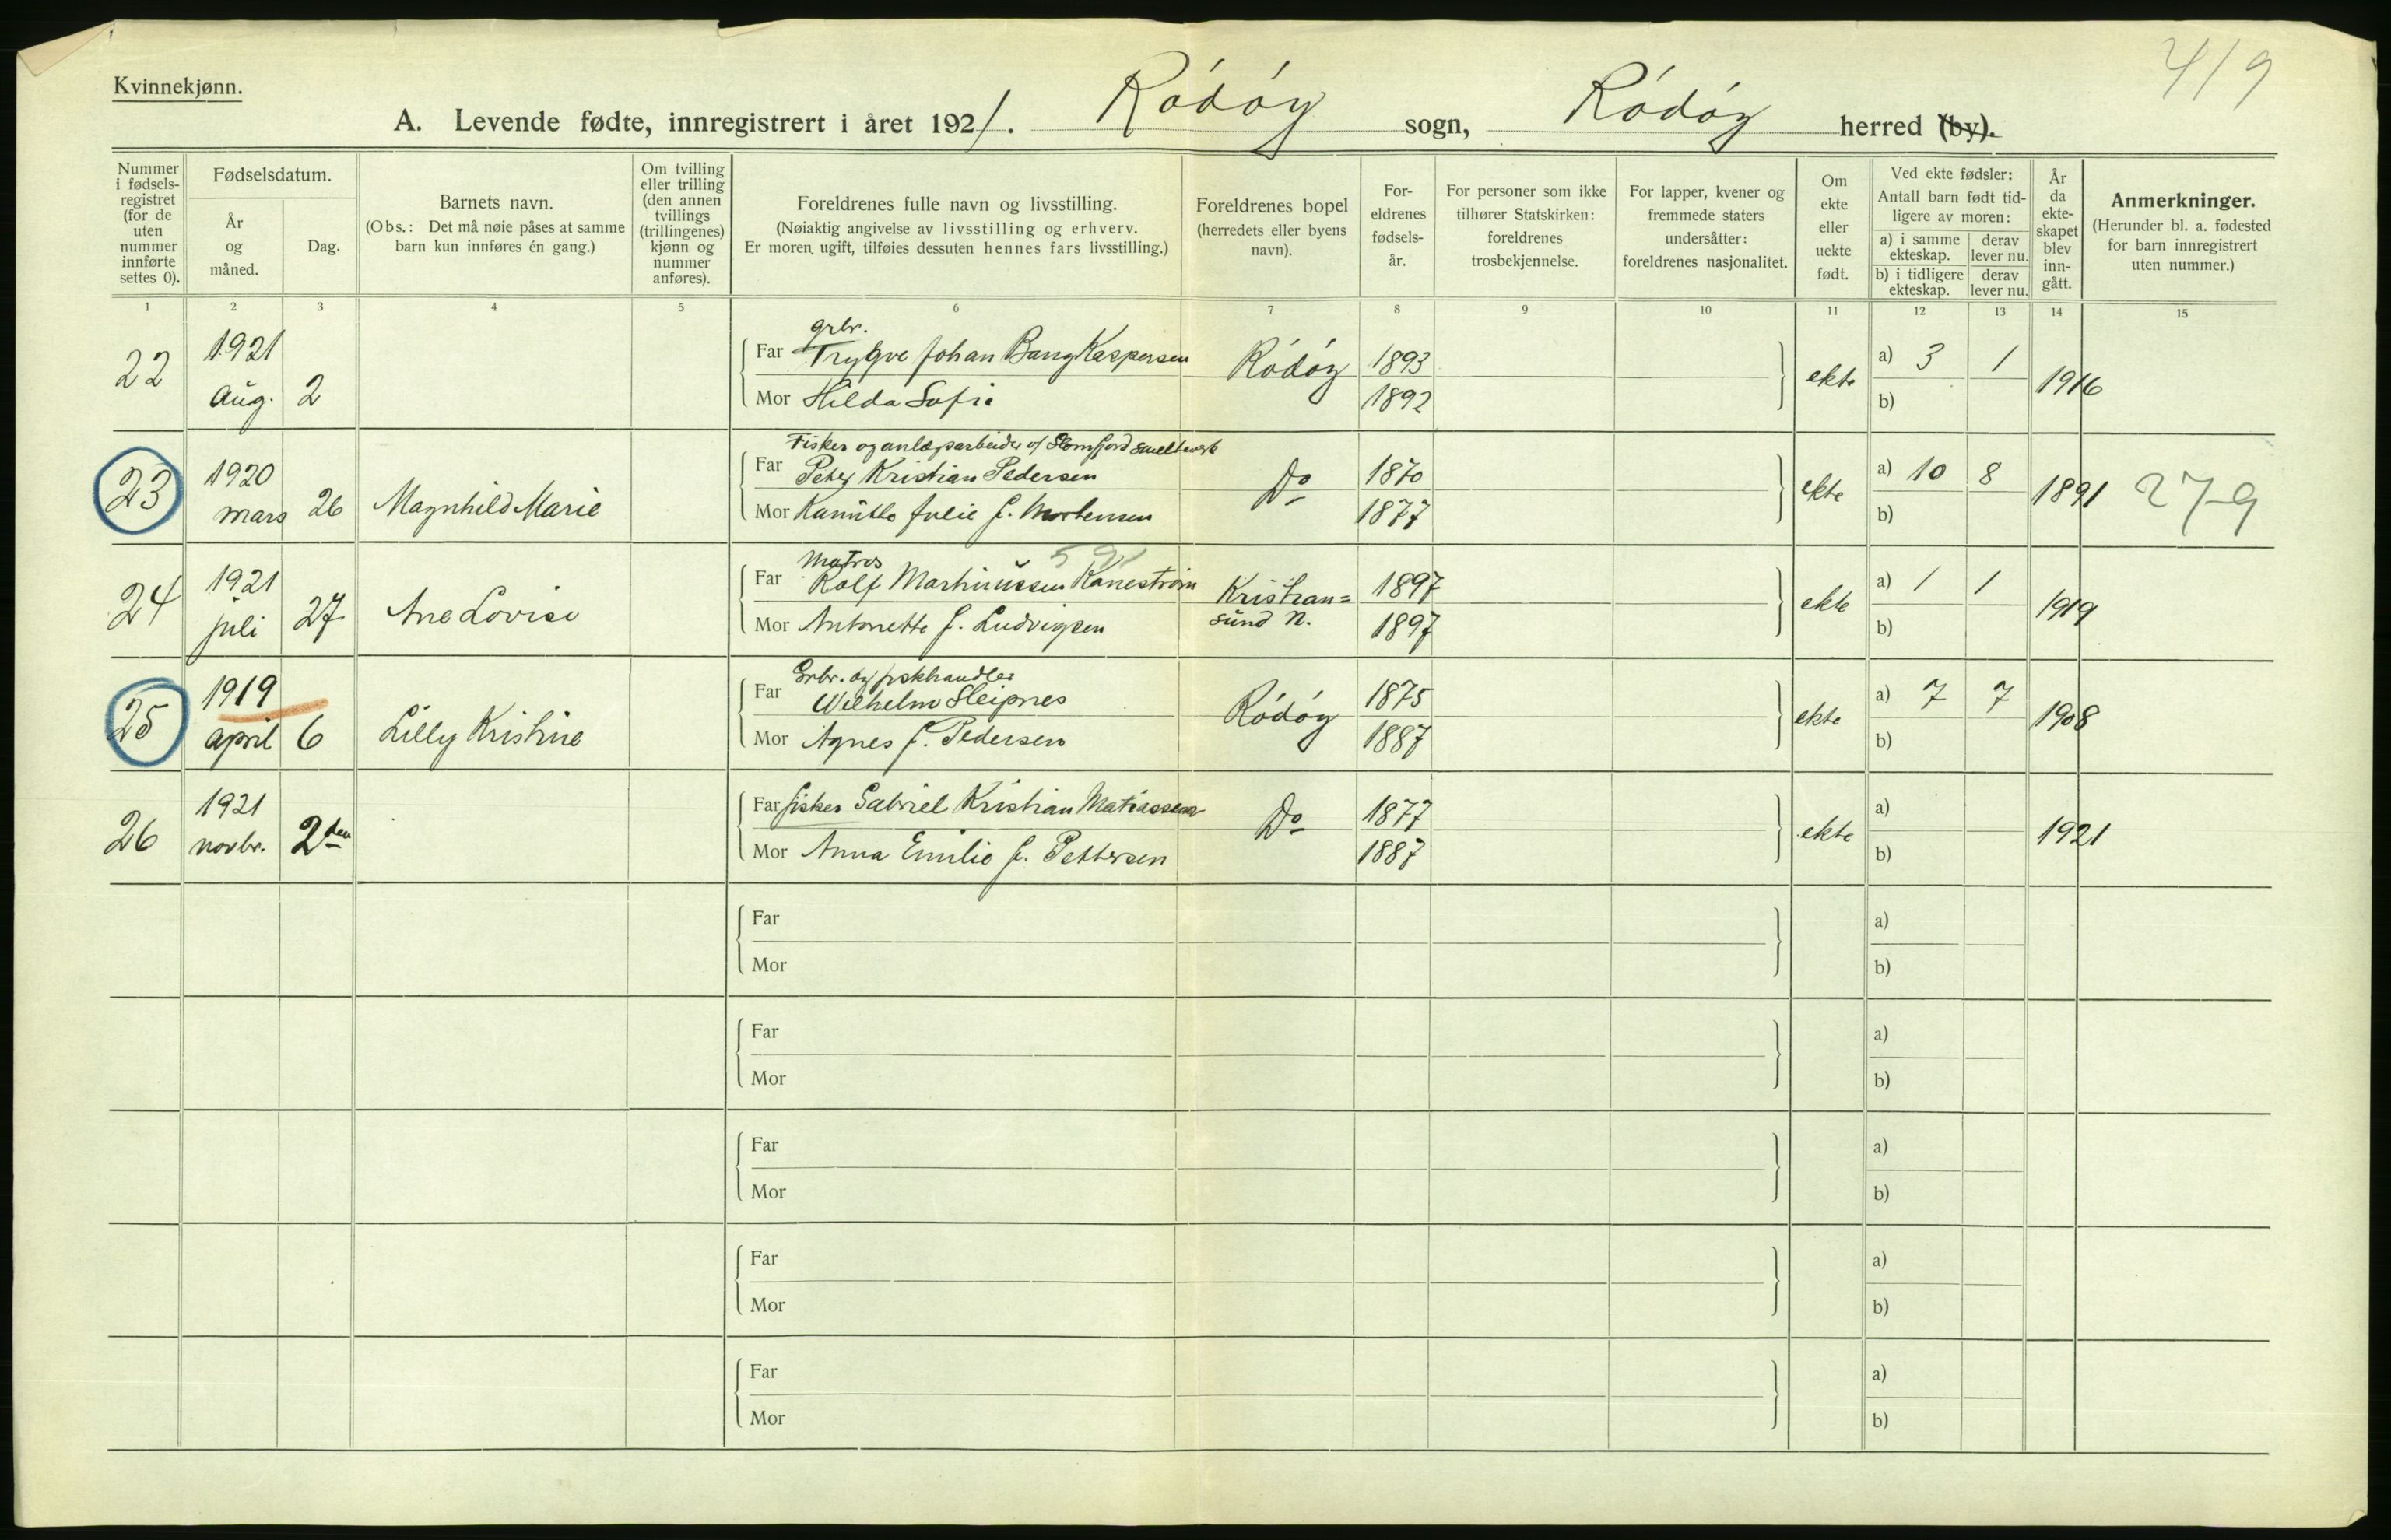 419
Kvinnekjønn.
A. Levende fødte, innregistrert i året 1921. Rödöy sogn, Rödöy herred (by).
Nummer i fødsels-registret (for de uten nummer innførte settes 0).
Fødselsdatum.
År og måned.
Dag.
Barnets navn.
(Obs.: Det må nøie påses at samme barn kun innføres én gang.)
Om tvilling eller trilling (den annen tvillings (trillingenes) kjønn og nummer anføres).
Foreldrenes fulle navn og livsstilling.
(Nøiaktig angivelse av livsstilling og erhverv.
Er moren ugift, tilføies dessuten hennes fars livsstilling.)
Foreldrenes bopel (herredets eller byens navn).
For-eldrenes fødsels-år.
For personer som ikke tilhører Statskirken: foreldrenes trosbekjennelse.
For lapper, kvener og fremmede staters undersåtter: foreldrenes nasjonalitet.
Om ekte eller uekte født.
Ved ekte fødsler:
Antall barn født tid-ligere av moren:
a) i samme ekteskap.
derav lever nu.
b) i tidligere ekteskap.
derav lever nu.
År da ekte-skapet blev inn-gått.
Anmerkninger.
(Herunder bl. a. fødested for barn innregistrert uten nummer.)
1 2 3 4 5 6 7 8 9 10 11 12 13 14 15
22 1921 Aug. 2
grbr.
Far Trygve Johan Bang Kaspersen Rödöy 1893 ekte a) 3 1 1916
Mor Hilda Sofie 1892 b)
23 1920 mars 26 Magnhild Marie
Fisker og anlægsarbeider v/ Glomfjord smelteverk
Far Peter Kristian Pedersen Do 1870 ekte a) 10 8 1891 279
Mor Kamitte Julie f. Mortensen 1877 b)
24 1921 juli 27 Ane Lovise
Matros
Far Rolf Martinussen Kanestrøm Kristian=sund N. 1897 ekte a) 1 1 1919
Mor Antonette f. Ludvigsen 1897 b)
25 1919 april 6 Lilly Kristine
Grbr. og fiskhandler
Far Wilhelm Sleipnes Rödöy 1875 ekte a) 7 7 1908
Mor Agnes f. Pedersen 1887 b)
26 1921 novbr. 2den
Far fisker Gabriel Kristian Matiassen Do 1877 ekte a) 1921
Mor Anna Emilie f. Pettersen 1887 b)
Far a)
Mor b)
Far a)
Mor b)
Far a)
Mor b)
Far a)
Mor b)
Far a)
Mor b)